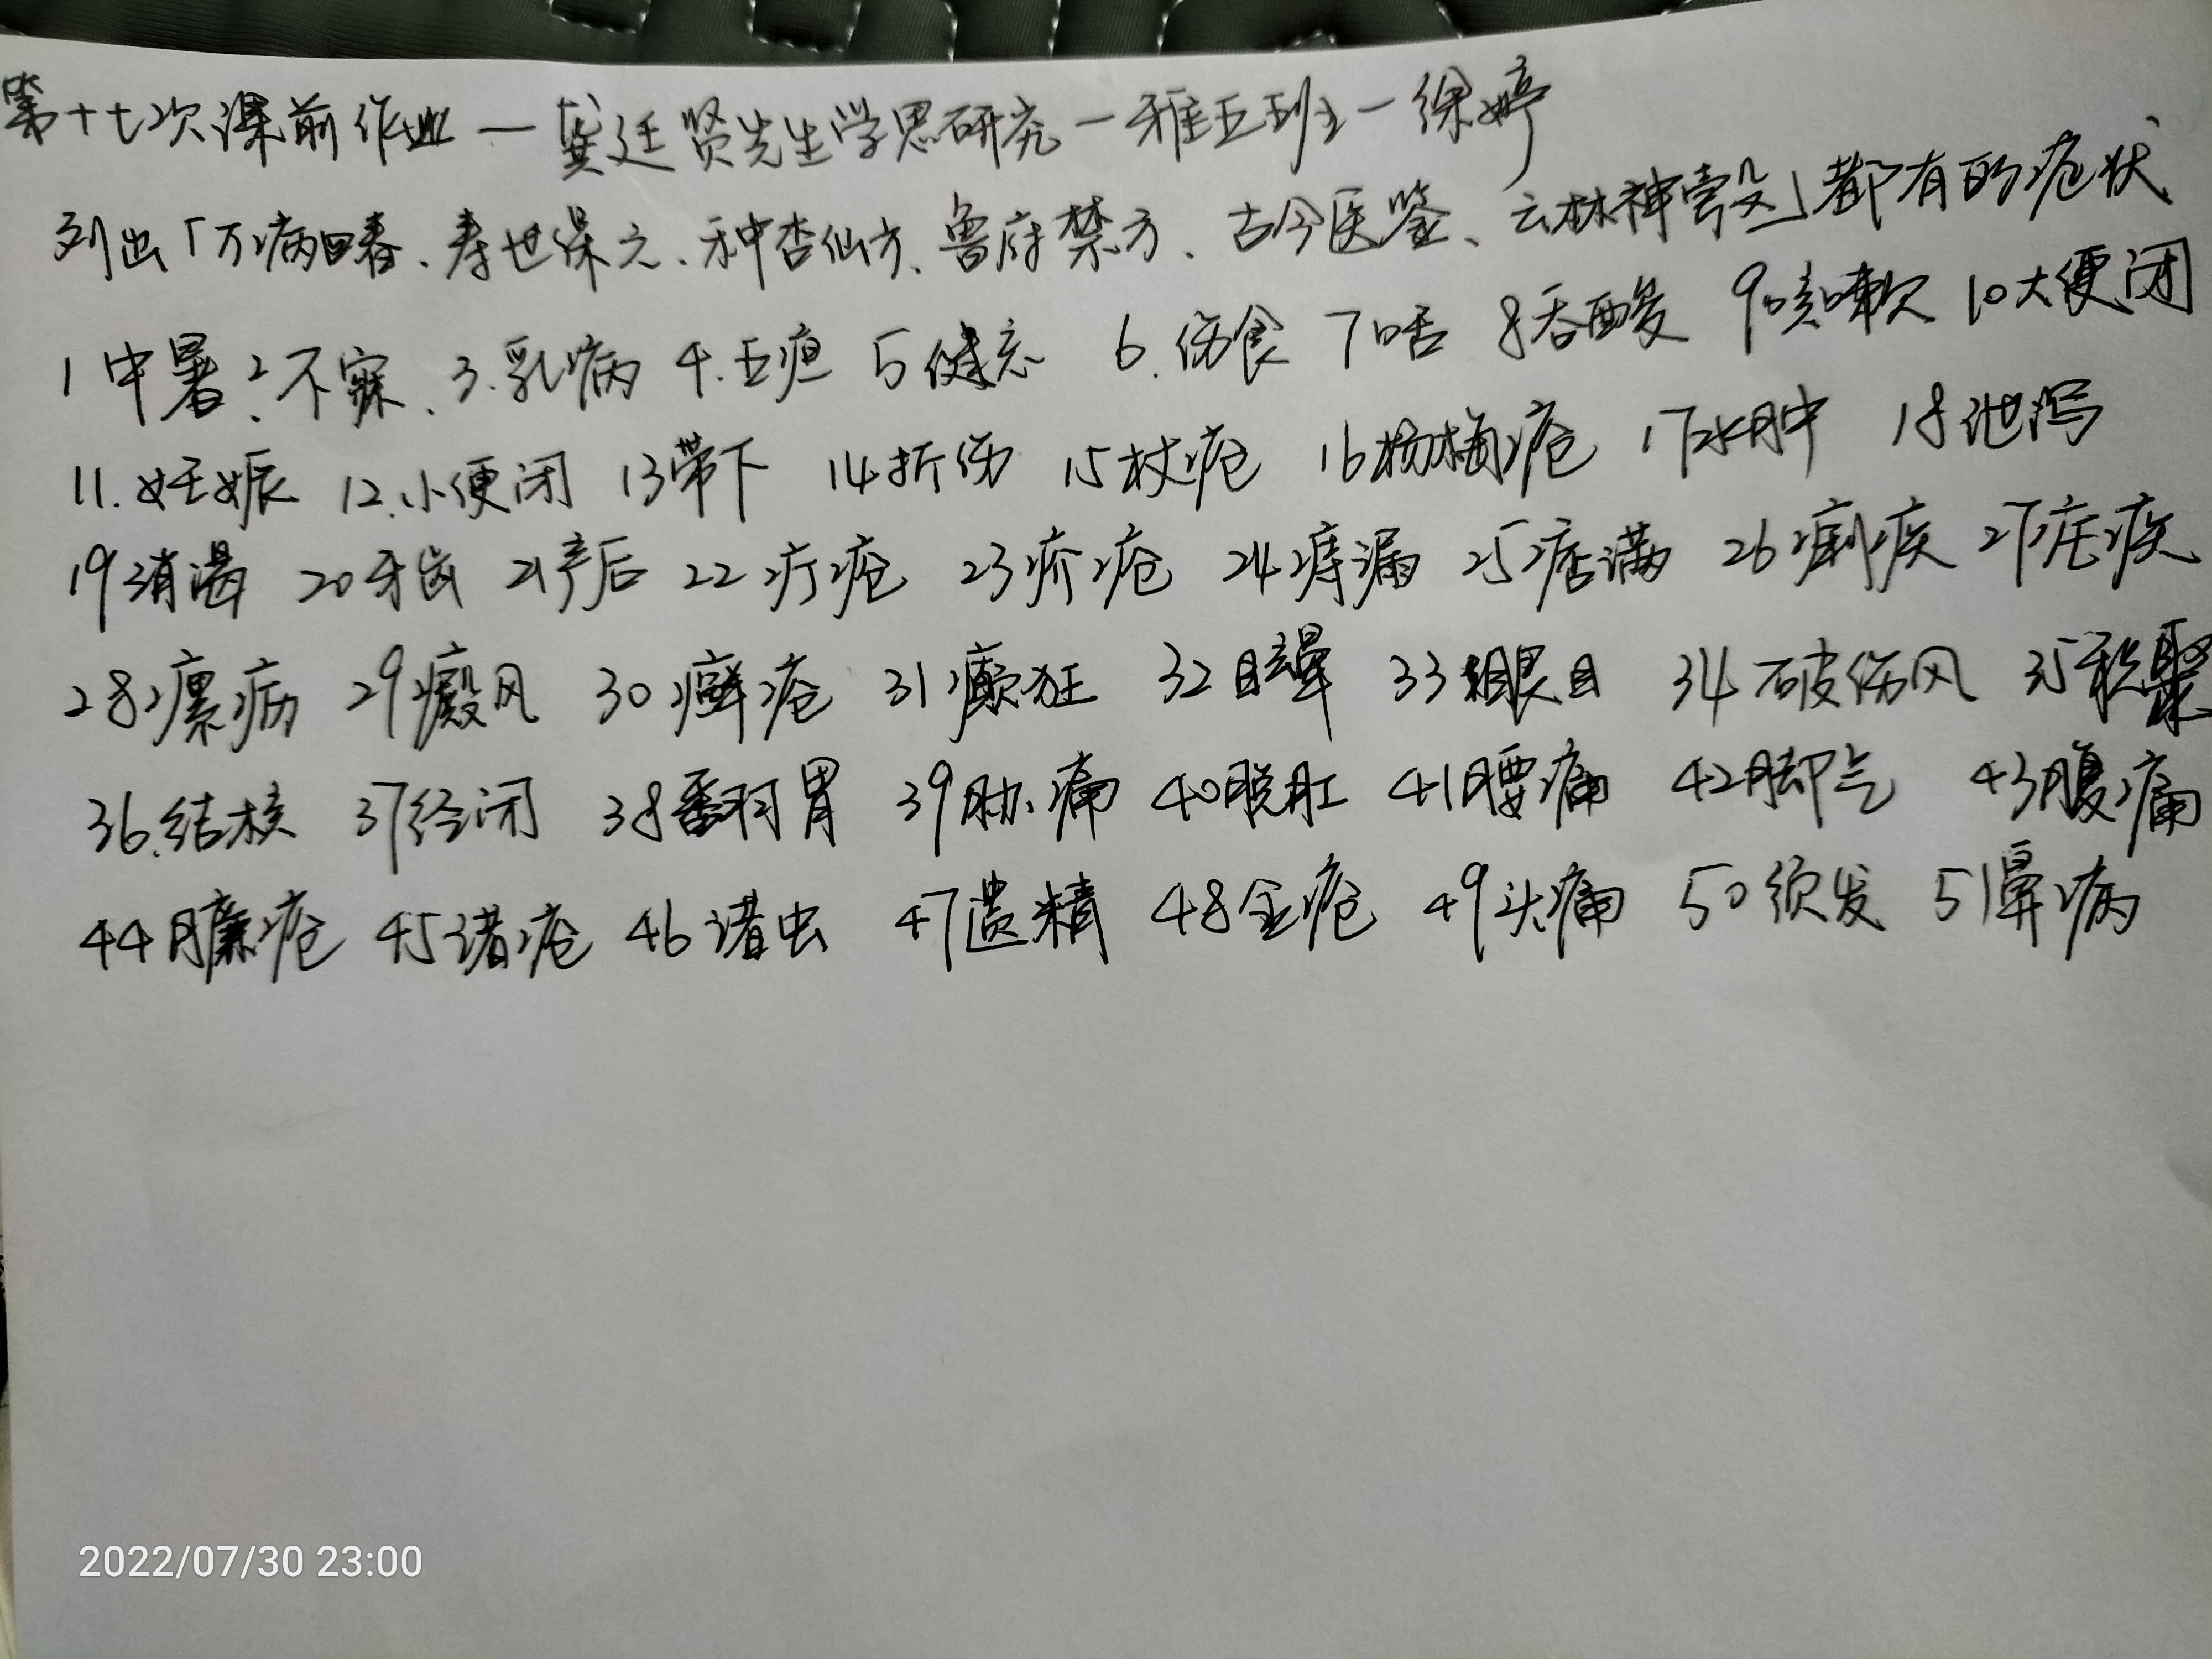 第十七次课前作业一龚廷贤先生学思研究一雅五班一徐婷
列出「万病回春、寿世保元、种杏仙方、鲁府禁方、古今医鉴、云林神彀」都有的症状
1中暑、2不寐、3.乳病 4.五疸 5健忘 6.伤食 7口舌 8吞酸 9咳嗽 10大便闭
11.妊娠 12.小便闭 13带下 14折伤 15杖疮 16杨梅疮 17水肿 18泄泻
19消渴 20牙齿 21产后 22疔疮 23疥疮 24痔漏 25痞满 26痢疾 27疟疾
28瘰疬 29癜风 30癣疮 31癫狂 32眩晕 33眼目 34破伤风 35积聚
36.结核 37经闭 38翻胃 39胁痛 40脱肛 41腰痛 42脚气 43腹痛
44臁疮 45诸疮 46诸虫 47遗精 48金疮 49头痛 50须发 51鼻病
2022/07/30 23:00